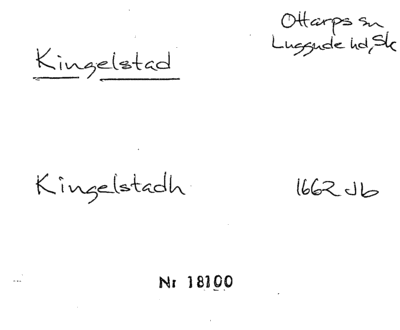 Ottarps sn
Luggude hd, Sk
Kingelstad
Kingelstadh
1662 Jb
Nr 18100